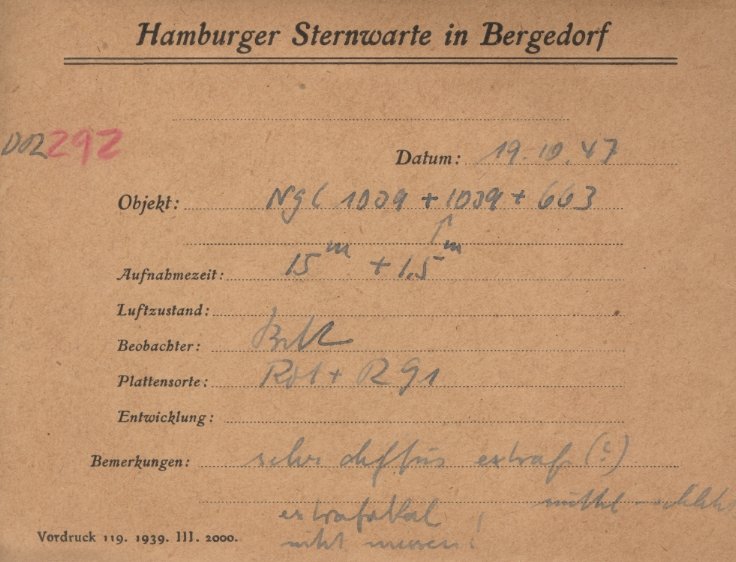 Hamburger Sternwarte in Bergedorf
D02292
Datum: 19.10.47
Objekt: NGC 1039 + 1039 + 663
↑
Aufnahmezeit: 15m + 1,5m
Luftzustand:
Beobachter:
Plattensorte: Rot + RG1
Entwicklung:
Bemerkungen: sehr diffus extraf (?)
extrafokal ! mittel-schlecht
nicht messen!
Vordruck 119. 1939. III. 2000.